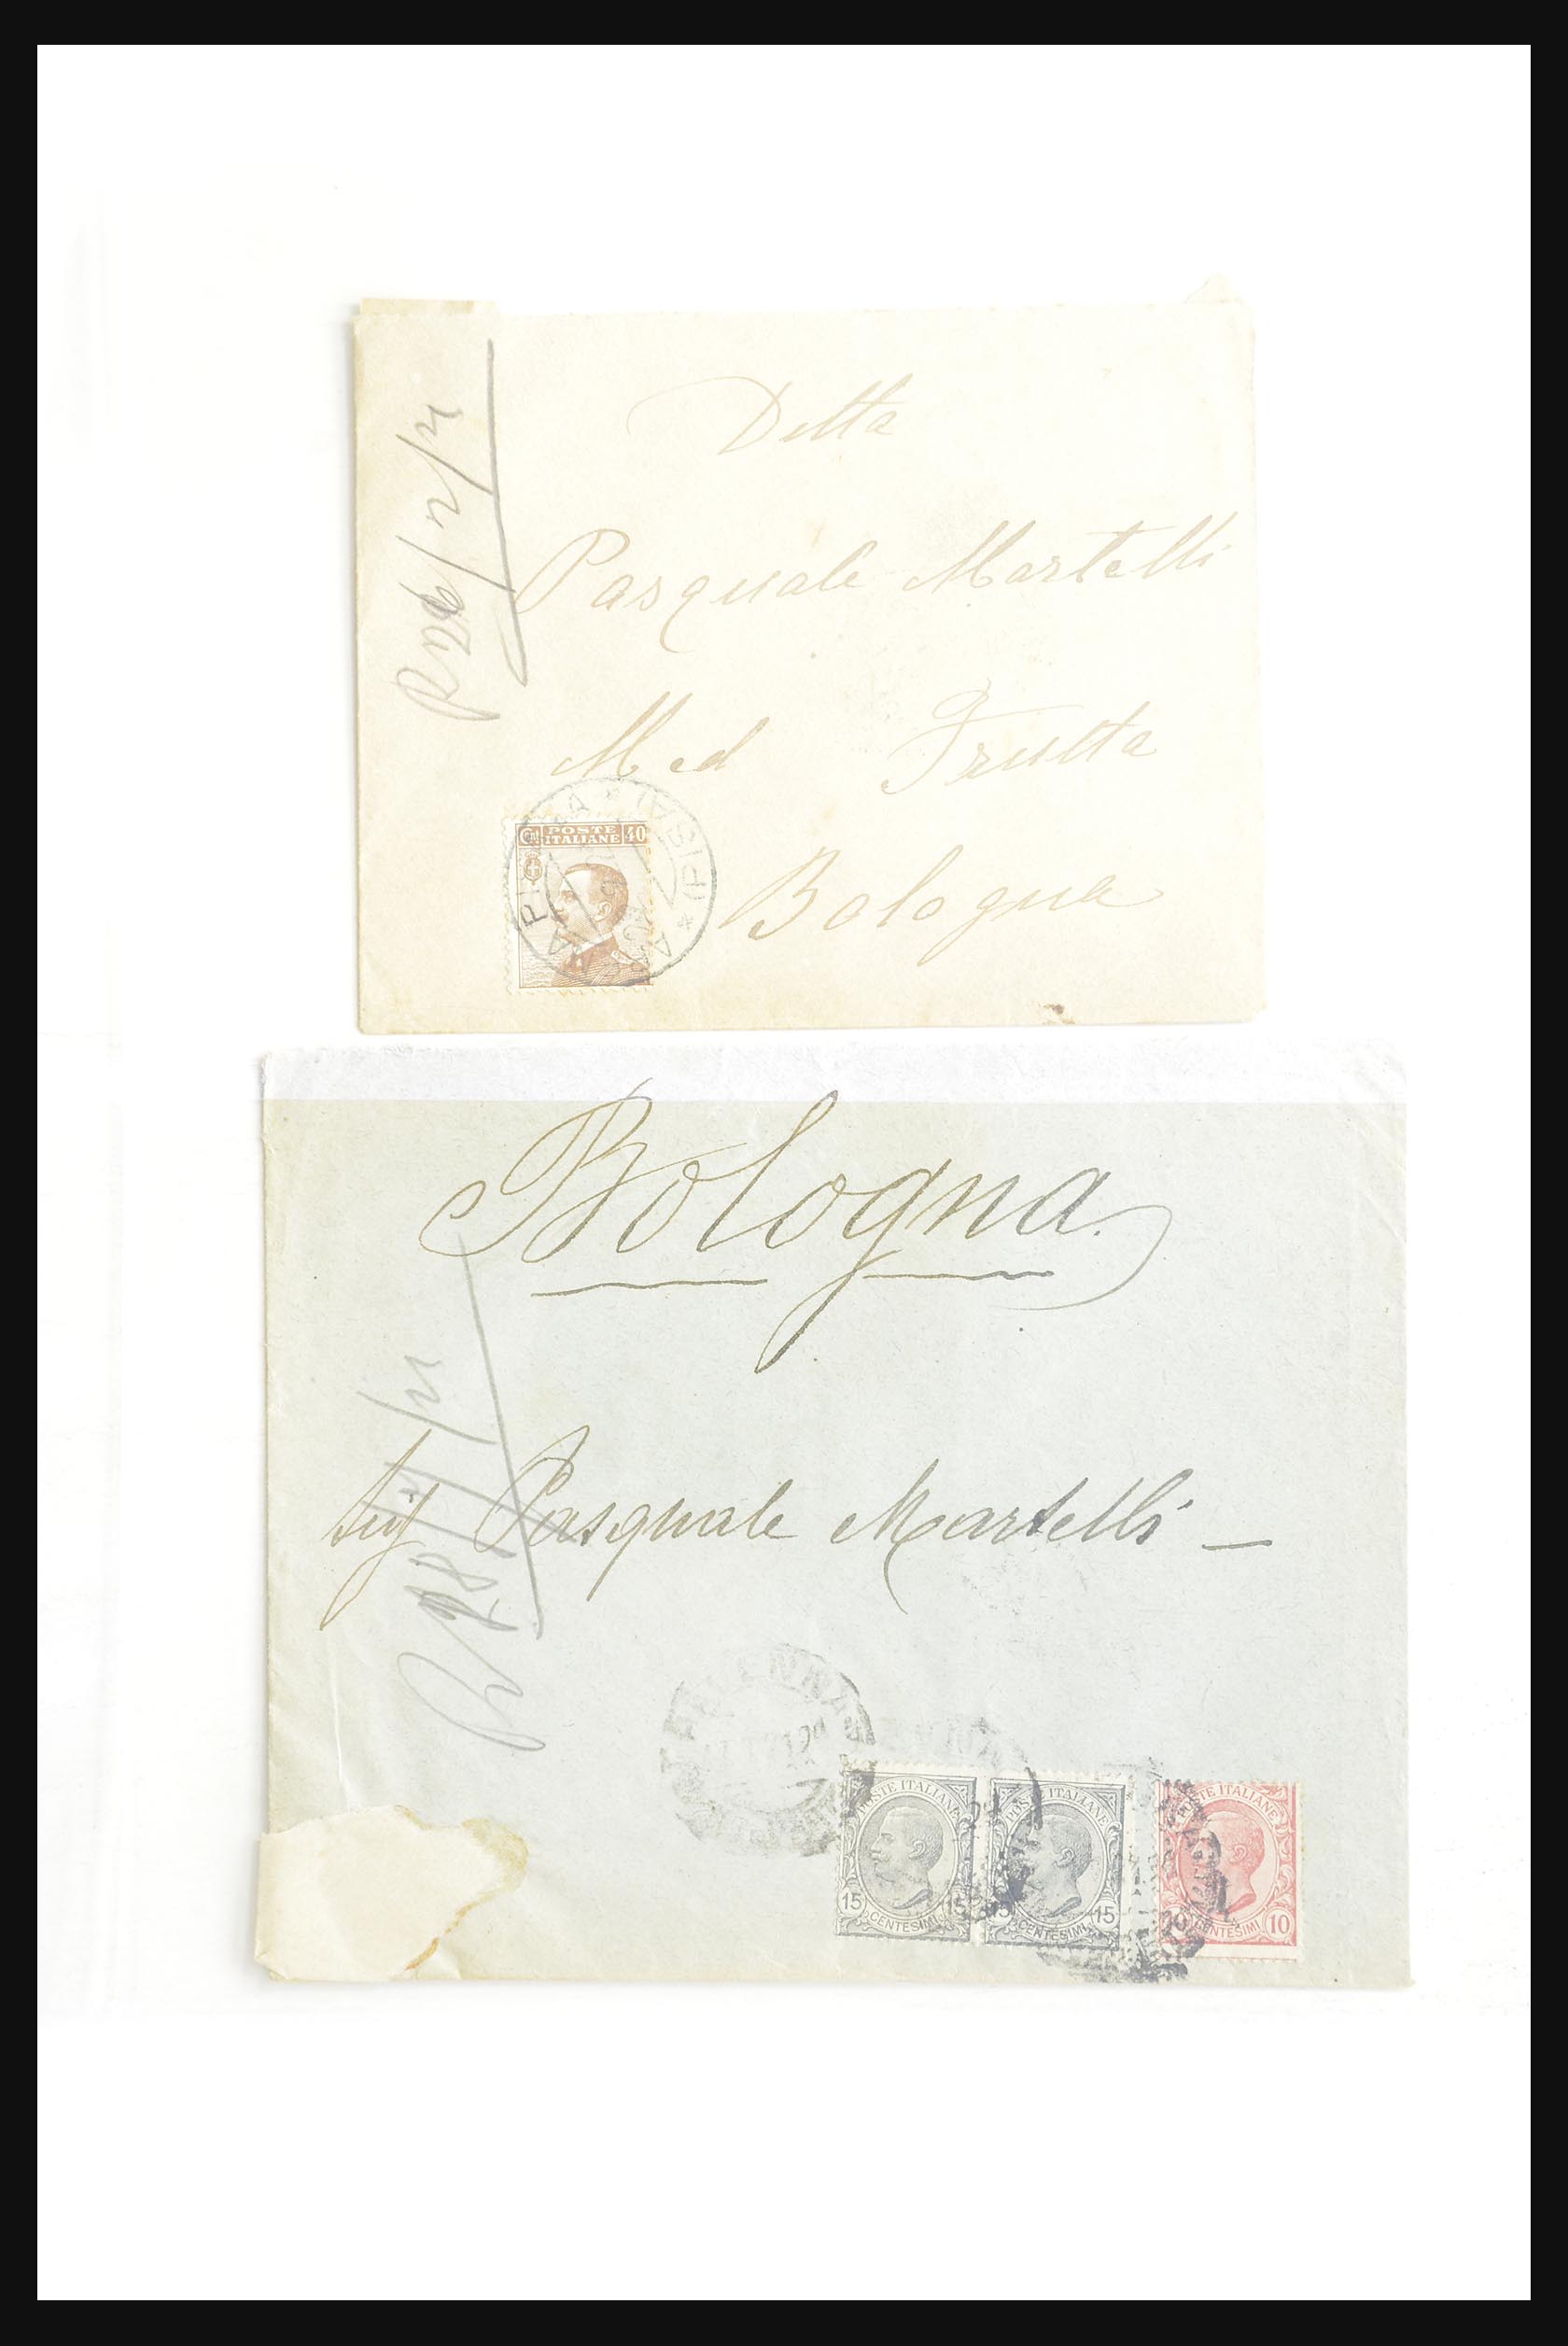 Ditta
Pasquale Martelli
Med Frutta
Bologna
Cmi POSTE ITALIANE 40
(PISA)
R 26/2/21
Bologna.
Sig Pasquale Martelli –
POSTE ITALIANE
15 CENTESIMI 15
POSTE ITALIANE
15 CENTESIMI 15
POSTE ITALIANE
10 CENTESIMI 10